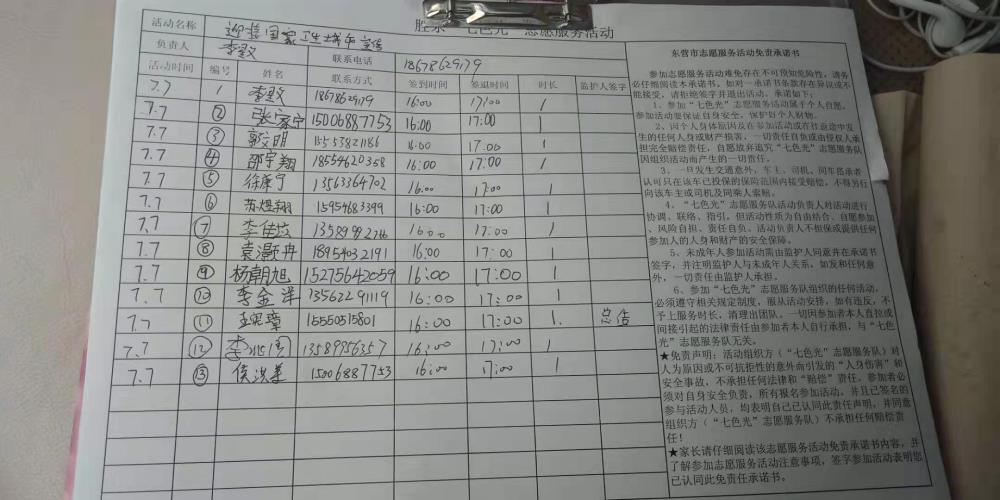 胜东"七色光"志愿服务活动
活动名称 迎接国家卫生城市宣传
负责人 李致 联系电话 18678629179
活动时间 编号 姓名 联系方式 签到时间 签退时间 时长 监护人签字
7.7 1 李致 18678629179 16:00 17:00 1
7.7 ② 张家宁 15006887753 16:00 17:00 1
7.7 ③ 郭文明 15553821186 16:00 17:00 1
7.7 ④ 邵宇翔 18554620358 16:00 17:00 1
7.7 ⑤ 徐康宁 13563364702 16:00 17:00 1
7.7 ⑥ 苏煜翔 15954683399 16:00 17:00 1
7.7 ⑦ 李佳 16:00 17:00 1
7.7 ⑧ 袁灏冉 18954032191 16:00 17:00 1
7.7 ⑨ 杨朝旭 15275642059 16:00 17:00 1
7.7 ⑩ 李金洋 13562291119 16:00 17:00 1
7.7 ⑪ 15550515801 16:00 17:00 1.
7.7 ⑫ 李 13589956357 16:00 17:00 1
7.7 ⑬ 侯洪 15006887753 16:00 17:00 1
东营市志愿服务活动免责承诺书
参加志愿服务活动难免存在不可预知危险性，请务
必仔细阅读本承诺书。如对一承诺书条款存在异议或不
能接受，请拒绝签字并退出活动。承诺如下：
1、参加"七色光"志愿服务活动属于个人自愿。
参加活动要保证自身安全，保护好个人财物。
2、因个人身体原因及在参加活动或在往返途中发
生的任何人身或财产损害，一切责任自负或由侵权人承
担完全赔偿责任，自愿放弃追究"七色光"志愿服务队
因组织活动而产生的一切责任。
3、一旦发生交通意外，车主、司机、同车搭乘者
认可只在该车已投保的保险范围内接受赔偿，不得另行
向该车主或司机及同乘人索赔。
4、"七色光"志愿服务队活动负责人对活动进行
协调、联络、指引，但活动性质为自由结合、自愿参加
、风险自担、责任自负、活动负责人不担保或提供任何
参加人的人身和财产的安全保障。
5、未成年人参加活动需由监护人同意并在承诺书
签字，并注明监护人与未成年人关系，如发和任何意
外，一切责任由监护人承担。
6、参加"七色光"志愿服务队组织的任何活动，
必须遵守相关规定制度，服从活动安排，如有违反，不
予上服务时长，清理出团队。一切因参加者本人直接或
间接引起的法律责任由参加者本人自行承担，与"七色
光"志愿服务队无关。
★免责声明：活动组织方（"七色光"志愿服务队）对
人为原因或不可抗拒性的意外而引发的"人身伤害"和
安全事故，不承担任何法律和"赔偿"责任。参加者必
须对自身安全负责，所有报名参加活动，并且已签名的
参与活动人员，均表明自己已认同此责任声明，并同意
组织方（"七色光"志愿服务队）不承担任何赔偿责
任！
★家长请仔细阅读该志愿服务活动免责承诺书内容，并
了解参加志愿服务活动注意事项，签字参加活动表明您
已认同此免责任承诺书。